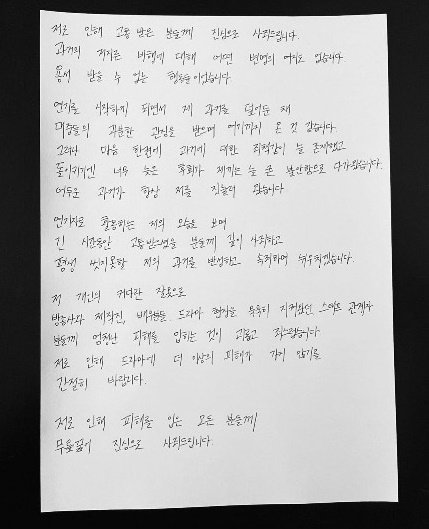 저로 인해 고통 받은 분들께 진심으로 사죄드립니다.
과거에 저지른 비행에 대해 어떤 변명의 여지도 없습니다.
용서 받을 수 없는 행동들이었습니다.
연기를 시작하게 되면서 제 과거를 덮어둔 채
대중들의 과분한 관심을 받으며 여기까지 온 것 같습니다.
그러나 마음 한편에 과거에 대한 죄책감이 늘 존재했고
돌이키기엔 너무 늦은 후회가 저에게는 늘 큰 불안함으로 다가왔습니다.
어두운 과거가 항상 저를 짓눌러 왔습니다.
연기자로 활동하는 저의 모습을 보며
긴 시간동안 고통받으셨을 분들께 깊이 사죄하고
평생 씻지못할 저의 과거를 반성하고 속죄하며 뉘우치겠습니다.
저 개인의 커다란 잘못으로
방송사와 제작진, 배우들, 드라마 현장을 묵묵히 지켜왔던 스태프 관계자
분들께 엄청난 피해를 입히는 것이 괴롭고 죄스럽습니다.
저로 인해 드라마에 더 이상의 피해가 가지 않기를
간절히 바랍니다.
저로 인해 피해를 입은 모든 분들께
무릎꿇어 진심으로 사죄드립니다.